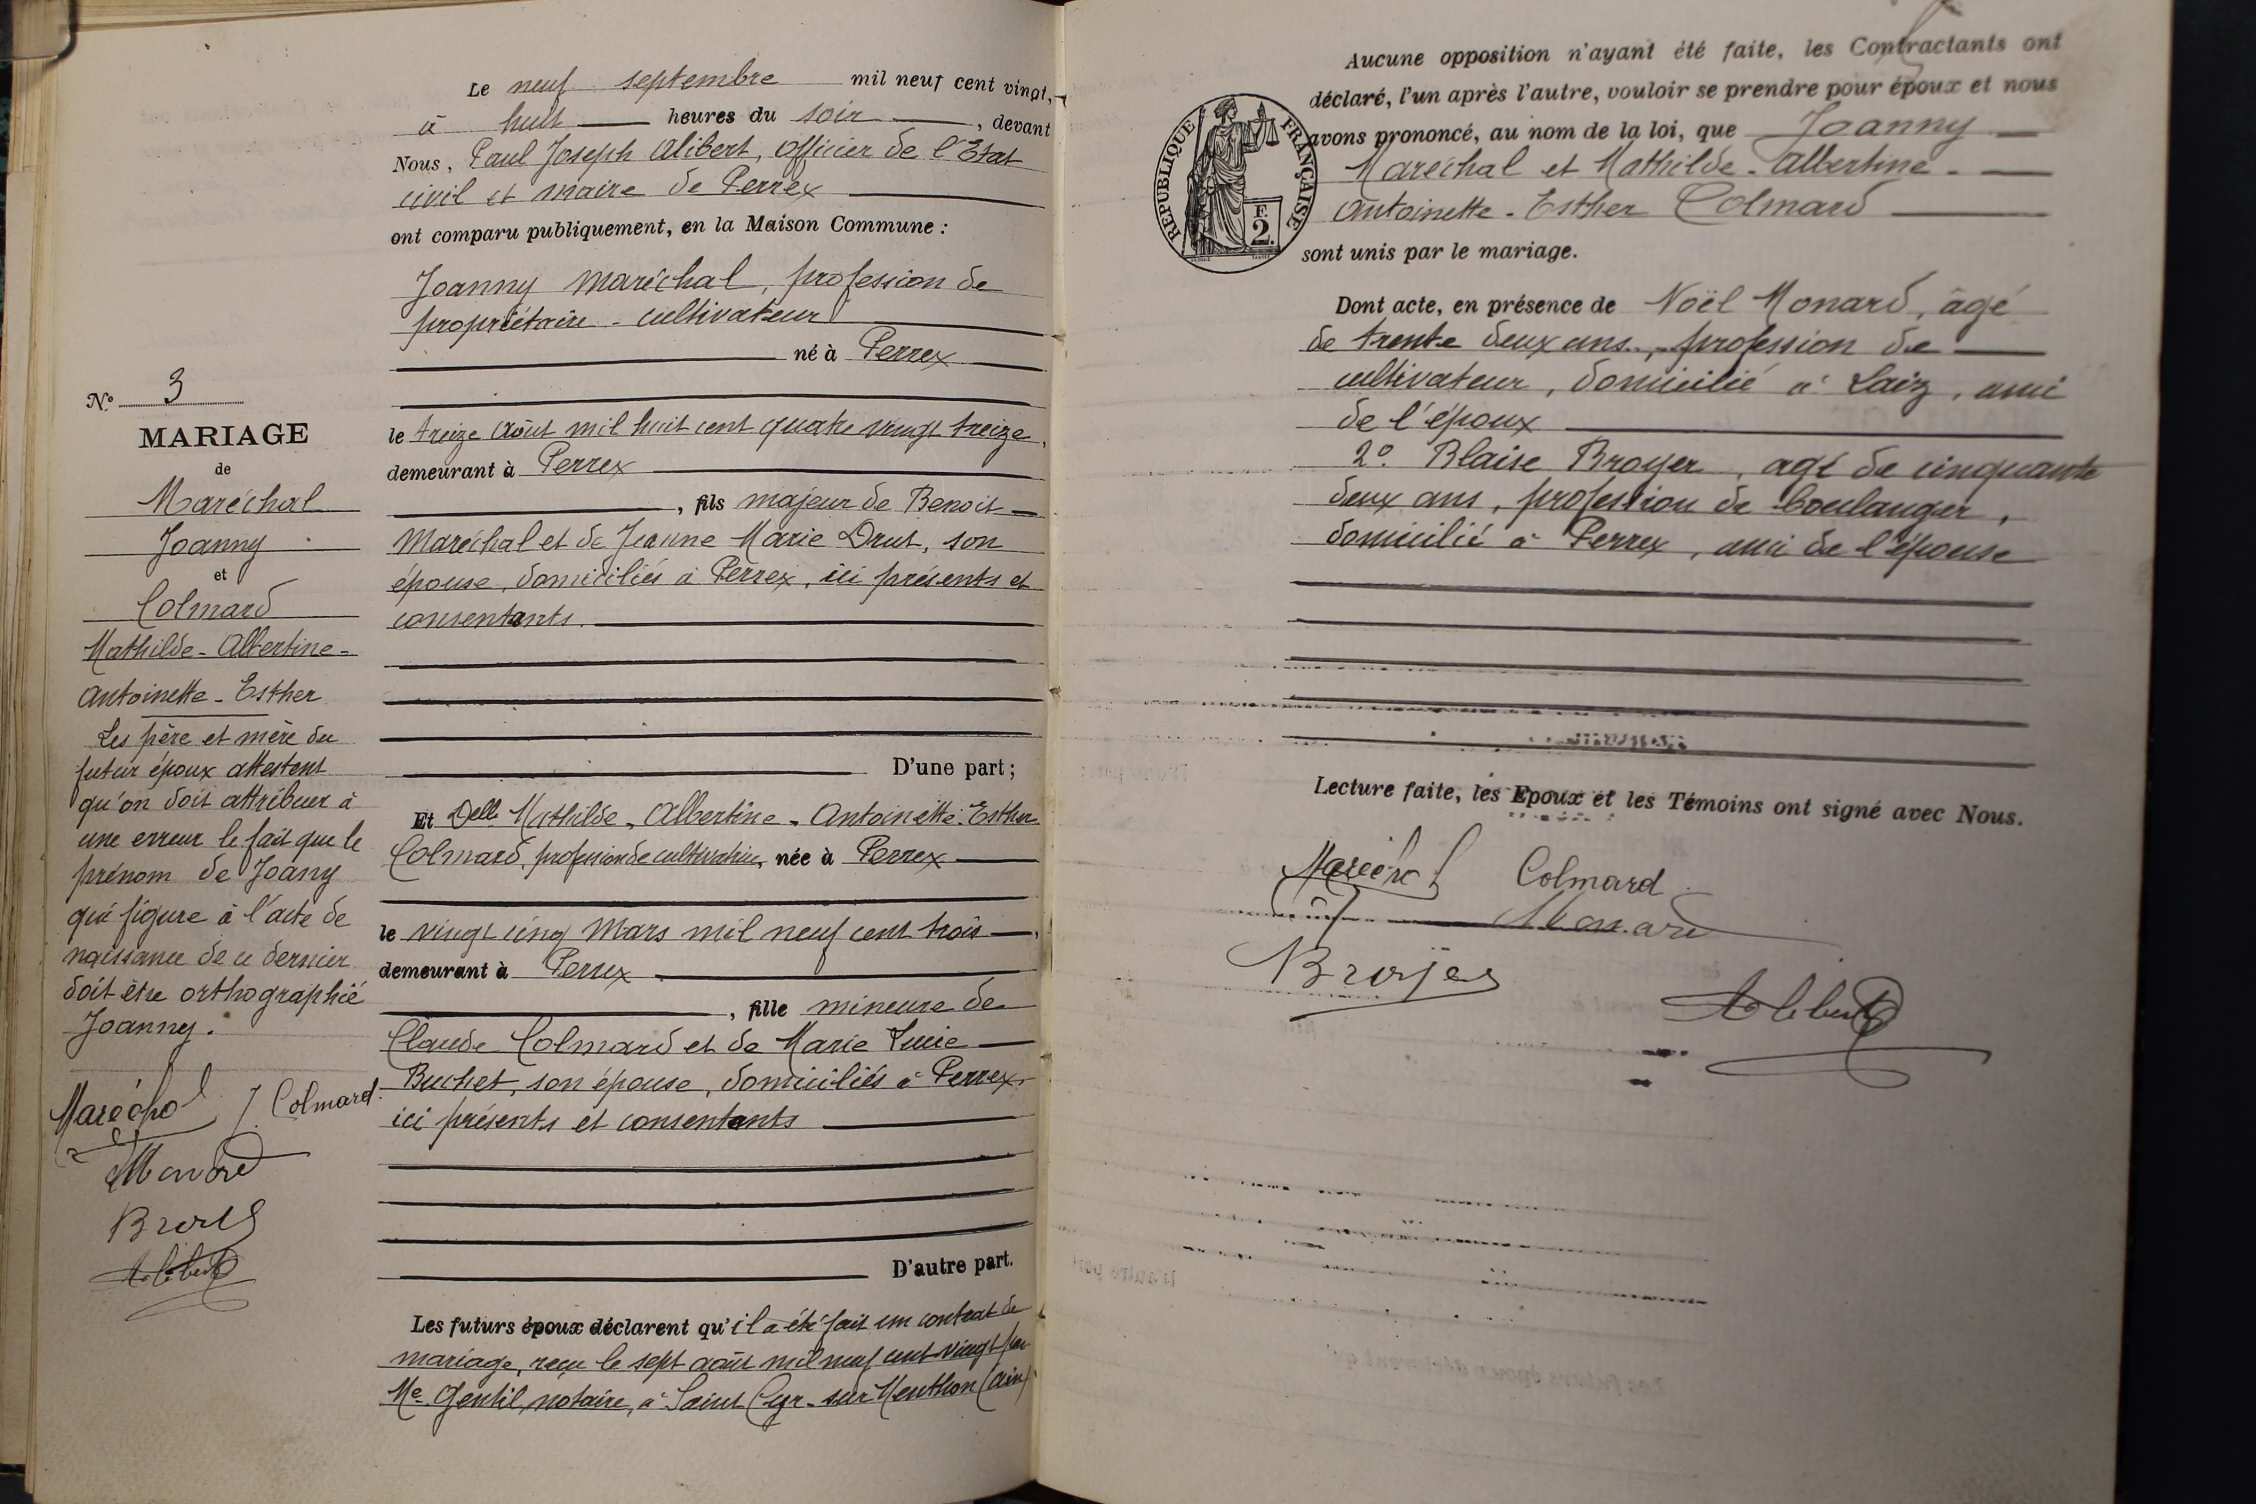 Le neuf septembre mil neuf cent vingt,
à huit heures du soir, devant
Nous, Paul Joseph Alibert, Officier de l'Etat
civil et maire de Perrex
ont comparu publiquement, en la Maison Commune :
Joanny Maréchal, profession de
propriétaire - cultivateur
né à Perrex
le treize Août mil huit cent quatre vingt treize,
demeurant à Perrex
, fils majeur de Benoit
Maréchal et de Jeanne Marie Drut, son
épouse, domiciliés à Perrex, ici présents et
consentants.
D'une part ;
Et Delle Mathilde - Albertine - Antoinette - Esther
Colmard, profession de cultivatrice, née à Perrex
le vingt cinq Mars mil neuf cent trois,
demeurant à Perrex
, fille mineure de
Claude Colmard et de Marie Lucie
Buchet, son épouse, domiciliés à Perrex,
ici présents et consentants
D'autre part.
Les futurs époux déclarent qu'il a été fait un contrat de
mariage, reçu le sept août mil neuf cent vingt par
Me Gentil, notaire, à Saint Cyr-sur Menthon (Ain)
N° 3
MARIAGE
de
Maréchal
Joanny
et
Colmard
Mathilde - Albertine -
Antoinette - Esther
Les père et mère du
futur époux attestent
qu'on doit attribuer à
une erreur le fait que le
prénom de Joany
qui figure à l'acte de
naissance de ce dernier
doit être orthographié
Joanny.
Maréchal J. Colmard
Monard
Broyer
Alibert
Aucune opposition n'ayant été faite, les Contractants ont
déclaré, l'un après l'autre, vouloir se prendre pour époux et nous
avons prononcé, au nom de la loi, que Joanny
Maréchal et Mathilde - Albertine -
Antoinette - Esther Colmard
sont unis par le mariage.
RÉPUBLIQUE FRANÇAISE
F.
2.
Dont acte, en présence de Noël Monard, âgé
de trente deux ans, profession de
cultivateur, domicilié à Laiz, ami
de l'époux
2° Blaise Broyer, agé de cinquante
deux ans, profession de boulanger,
domicilié à Perrex, ami de l'épouse
Lecture faite, les Epoux et les Témoins ont signé avec Nous.
Maréchal Colmard
Monard
Broyer
Alibert